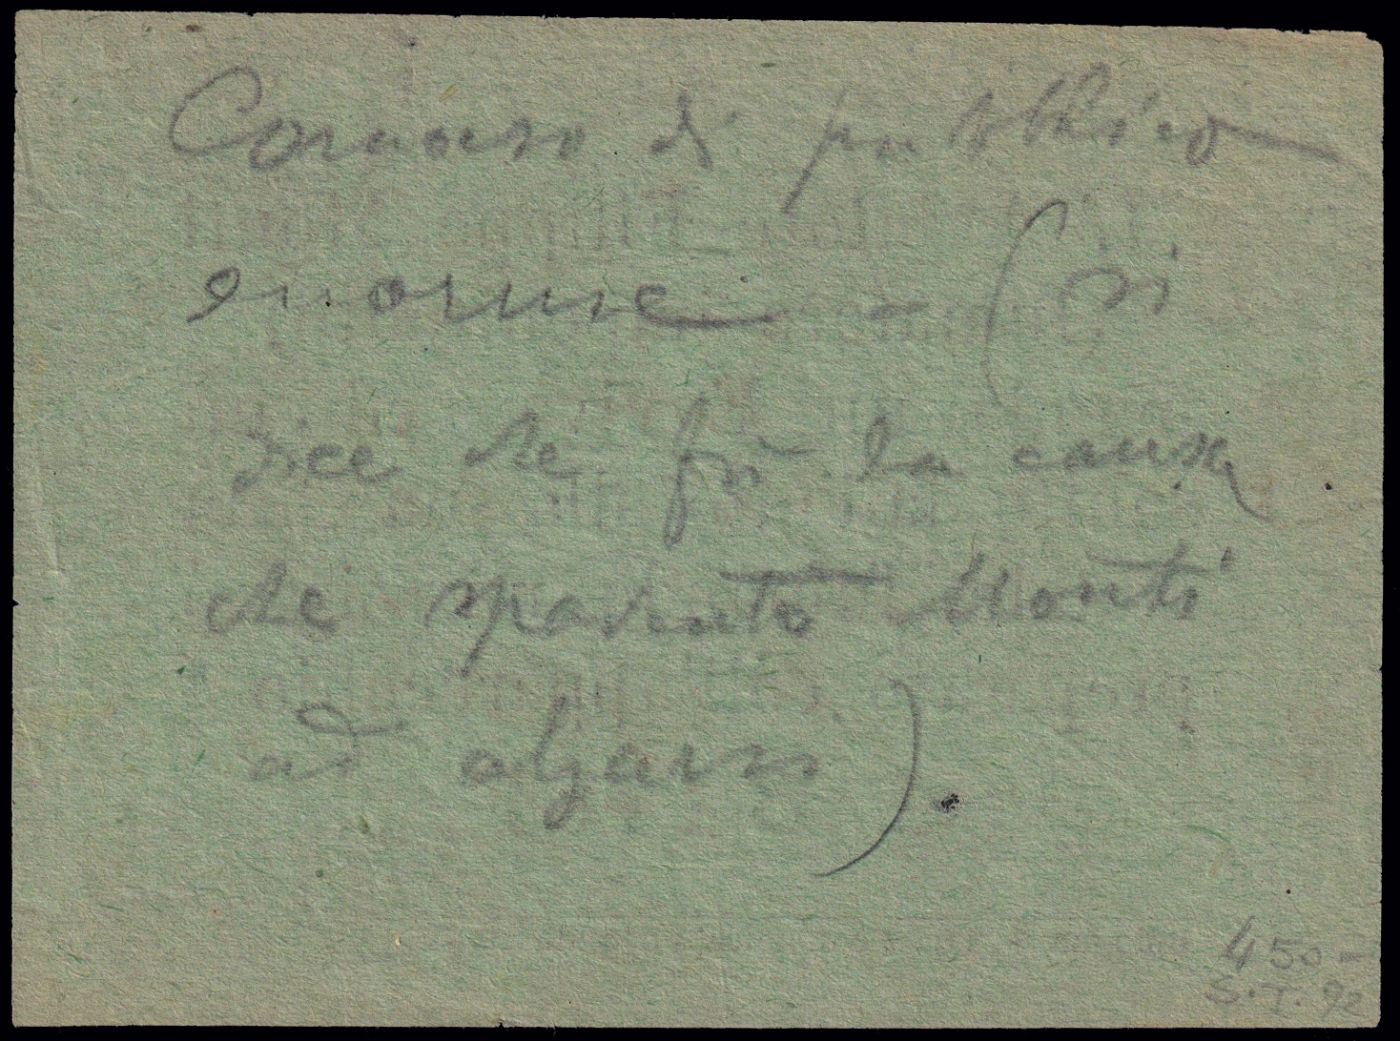 Concorso di pubblico
enorme – (si
dice che fù la causa
che spaventò Monti
ad alzarsi).
450–
S.T. 92